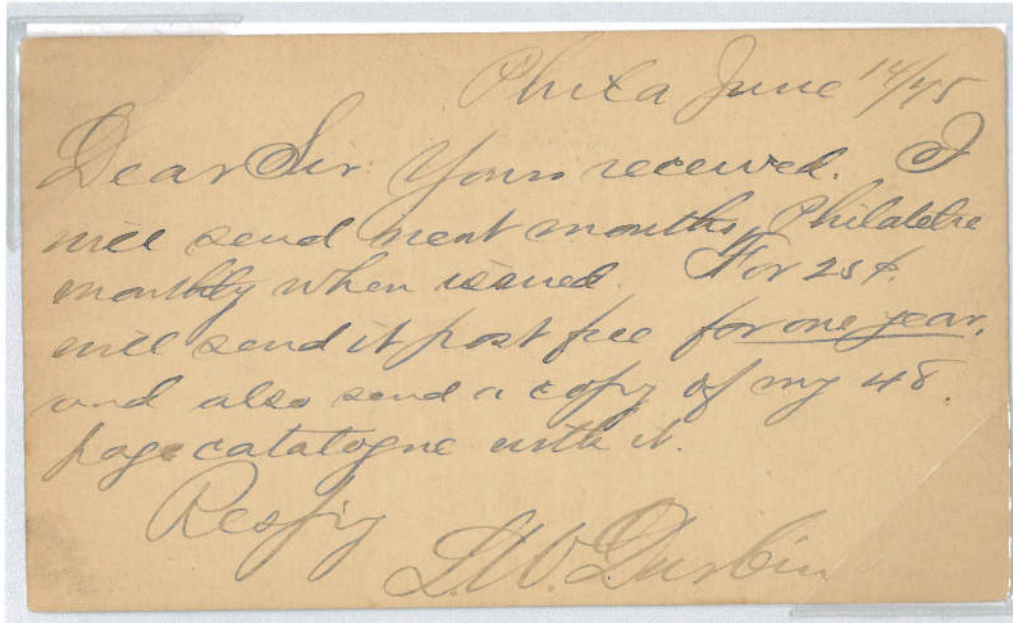 Phila June 14/75
Dear Sir: Yours received. I
will send next months Philatelic
monthly when issued. For 25¢.
will send it post free for one year.
and also send a copy of my 48.
page catalogue with it.
Respy
L.W. Durbin